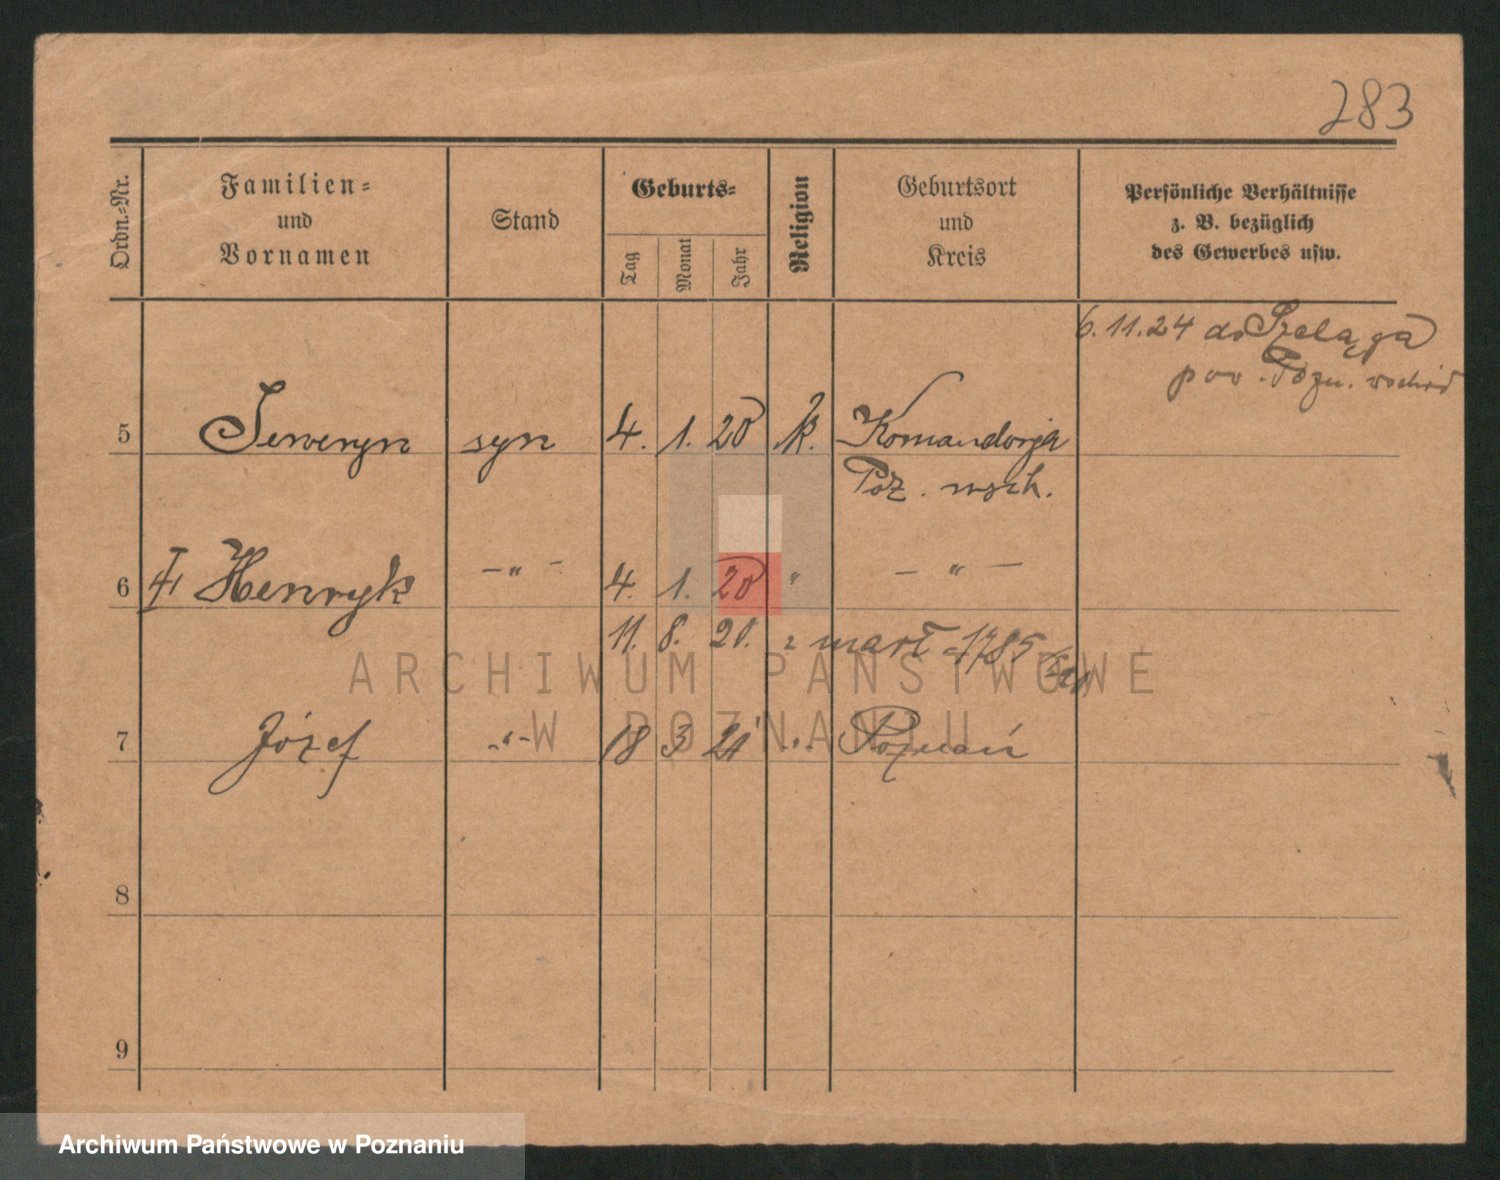 283
Ordn.-Nr.
Familien-
und
Vornamen
Stand
Geburts-
Tag
Monat
Jahr
Religion
Geburtsort
und
Kreis
Persönliche Verhältnisse
z. B. bezüglich
des Gewerbes usw.
6.11.24 do Szeląga
pow. Pozn. wschód
5 Seweryn syn 4. 1. 20 k. Komandorja
Poz. wsch.
6 Henryk -"- 4. 1. 20 " -"-
11. 8. 20. zmarł 1785
ARCHIWUM PAŃSTWOWE
W POZNANIU
7 Józef -"- 18 3 21 " Poznań
8
9
Archiwum Państwowe w Poznaniu